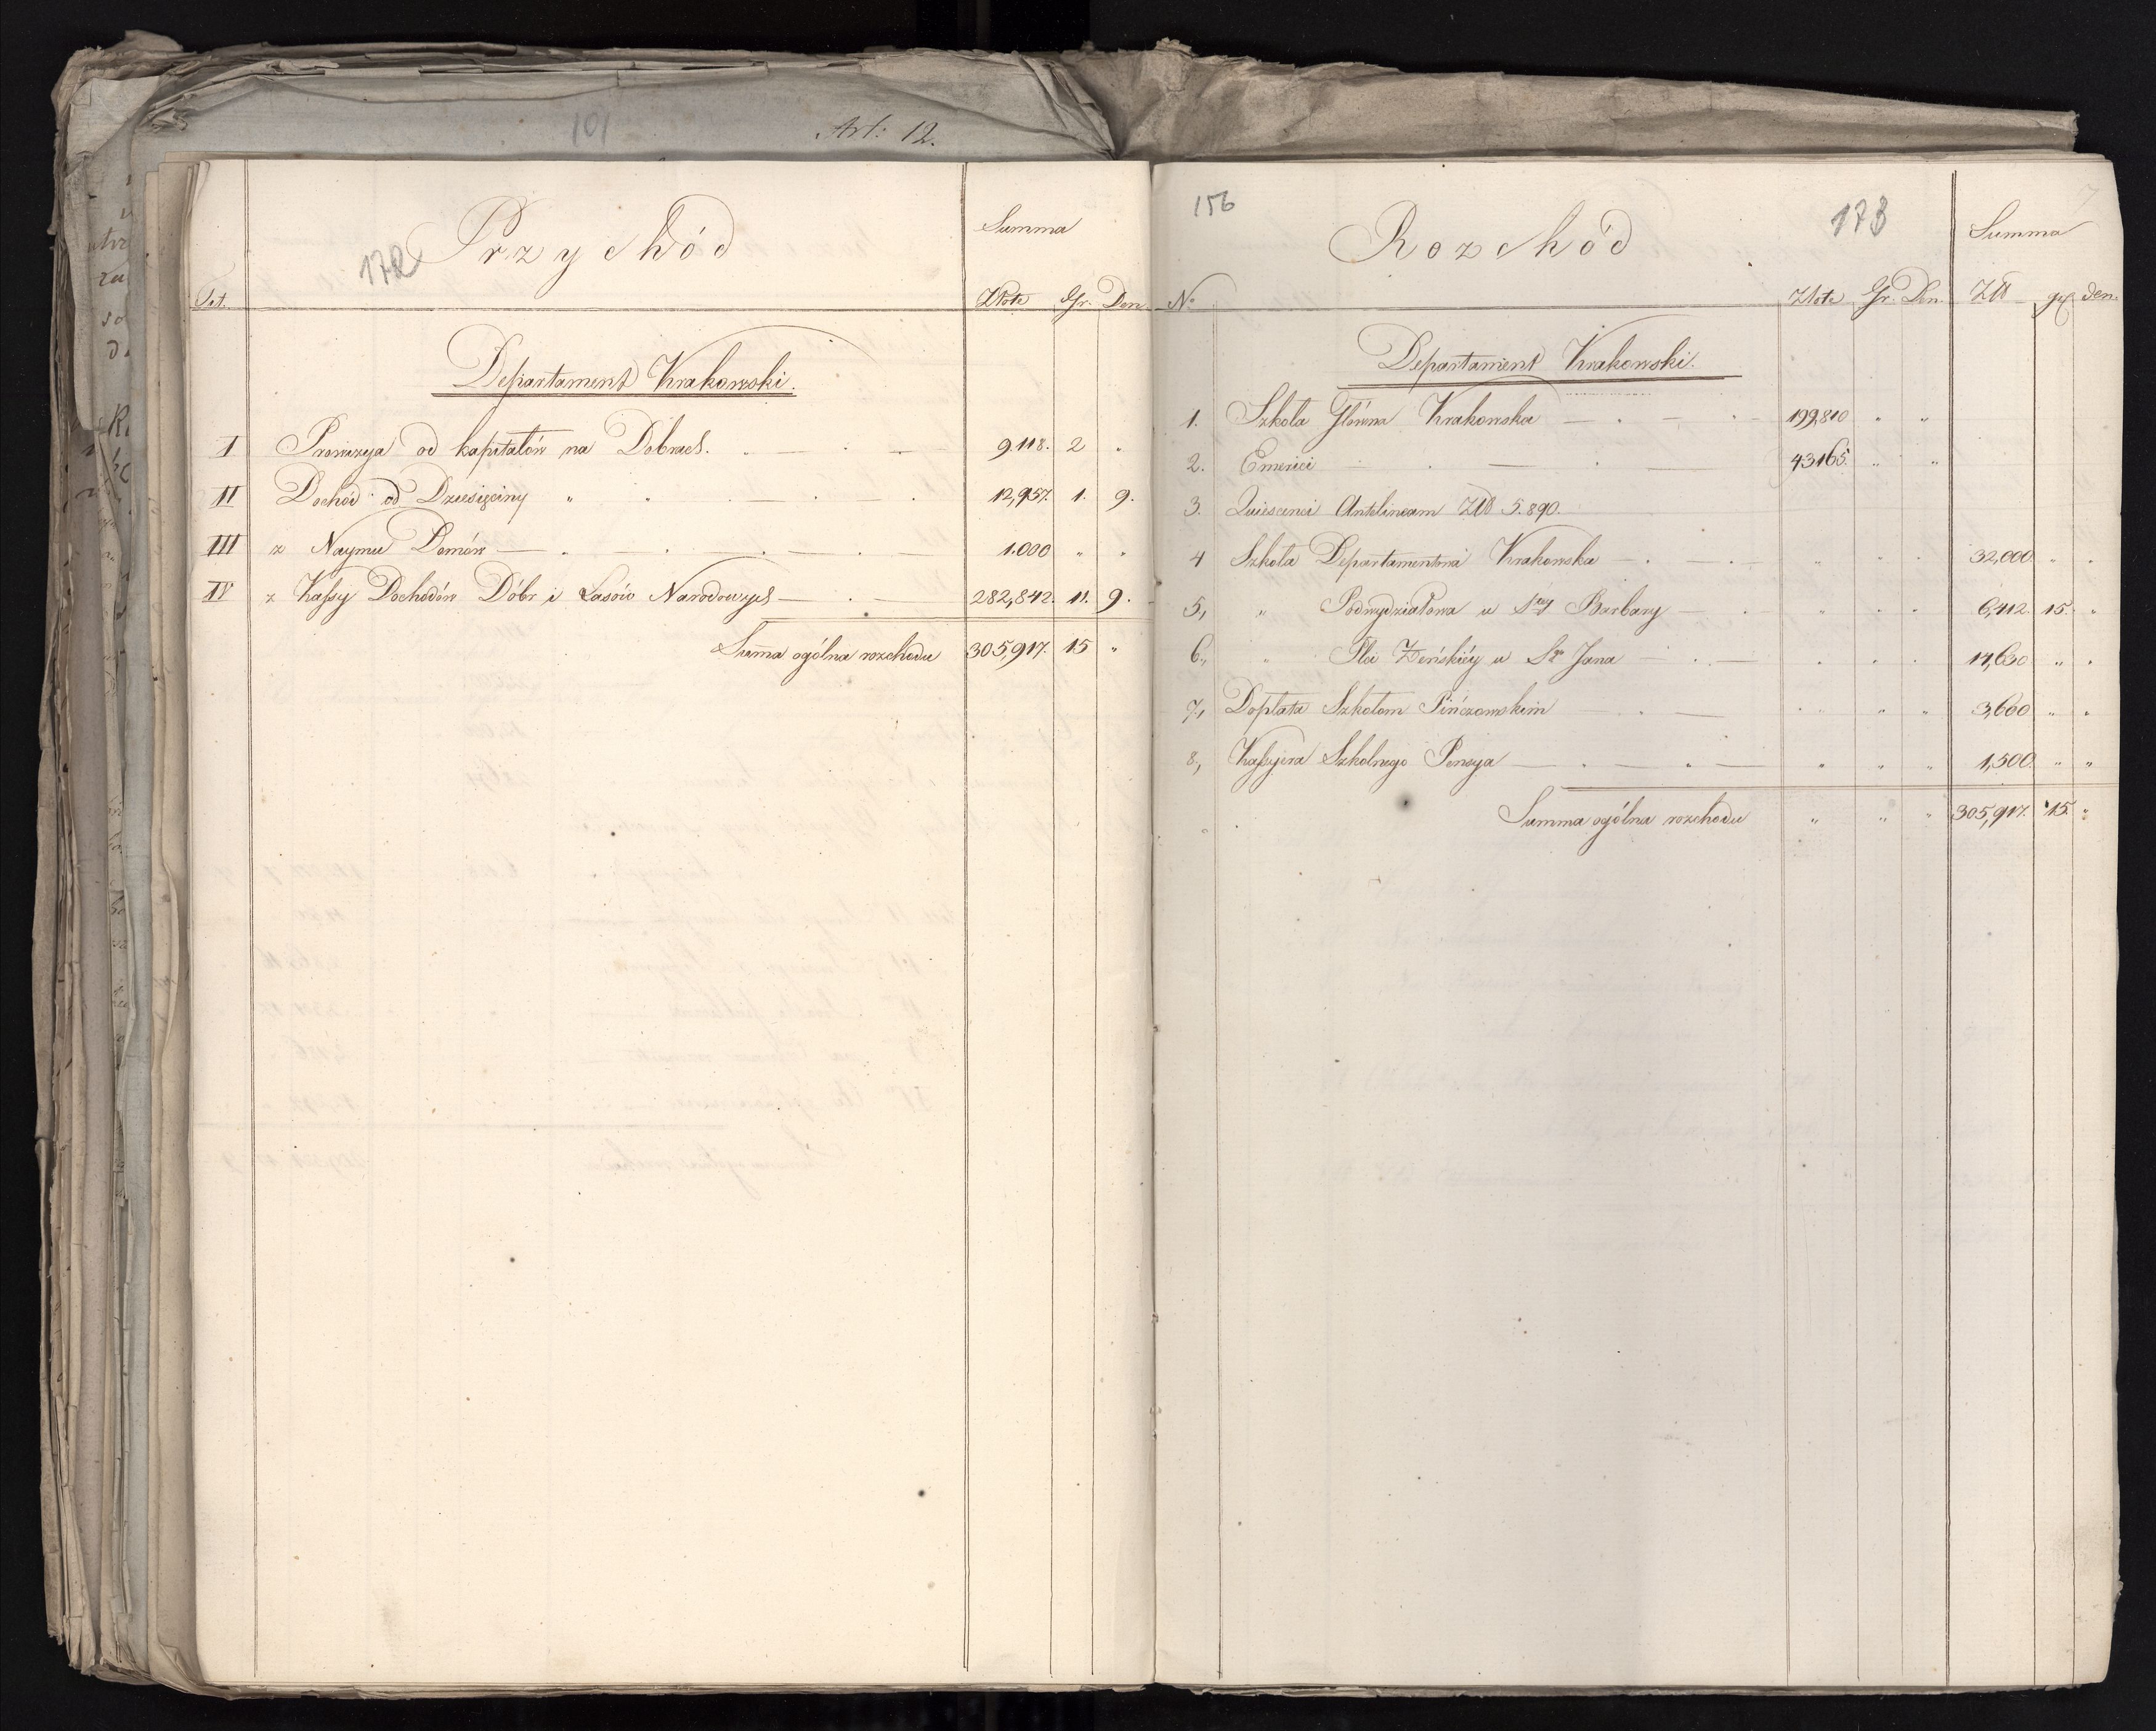 101 Art: 12.
172 Przychód Summa
Tit. Złote Gr. Den.
Departament Krakowski.
I Prowizya od kapitałów na Dobrach. 9.118. 2 "
II Dochód od Dziesięciny " " 12,957. 1. 9.
III z Naymu Domów 1.000 " "
IV z Kassy Dochodów Dóbr i Lasów Narodowych 282,842. 11. 9.
Summa ogólna rozchodu 305,917. 15 "
156 Rozchód 173 Summa
No Złote Gr. Den. Złł gr den.
Departament Krakowski.
1. Szkoła Główna Krakowska 199,810 " "
2. Emerici 43165. " "
3. Quiescenci Antelineam Złł 5.890.
4 Szkoła Departamentowa Krakowska " " " 32,000 " "
5, " Podwydziałowa u Stey Barbary " " " 6,412. 15. "
6, " Płci Żeńskiéy u Sgo Jana 14,630 " "
7, Dopłata Szkołom Pińczowskim " " " 3,660 " "
8, Kassyera Szkolnego Pensya " " " 1,500. " "
Summa ogólna rozchodu " " " 305,917. 15. "